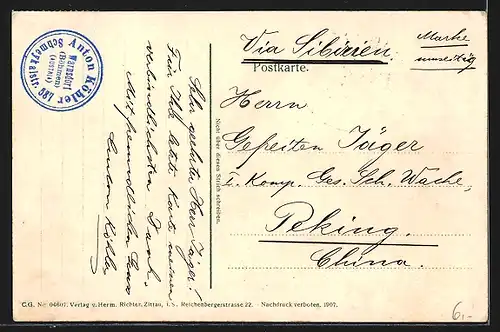 Anton Köhler
Warnsdorf
(Böhmen)
(Austria)
Via Sibirien.
Postkarte.
Marke
umseitig
Herrn
Gefreiten Jäger
I. Komp. Ges. Sch. Wache,
Peking.
China.
Sehr geehrter Herr Jäger!
Für Ihre letzte Karte meinen
verbindlichsten Dank.
Mit freundlichem Gruss
Anton Köhler
Nicht über diesen Strich schreiben.
C.G. No 04607. Verlag v. Herm. Richter, Zittau, i. S., Reichenbergerstrasse 22. - Nachdruck verboten. 1907.
6,-